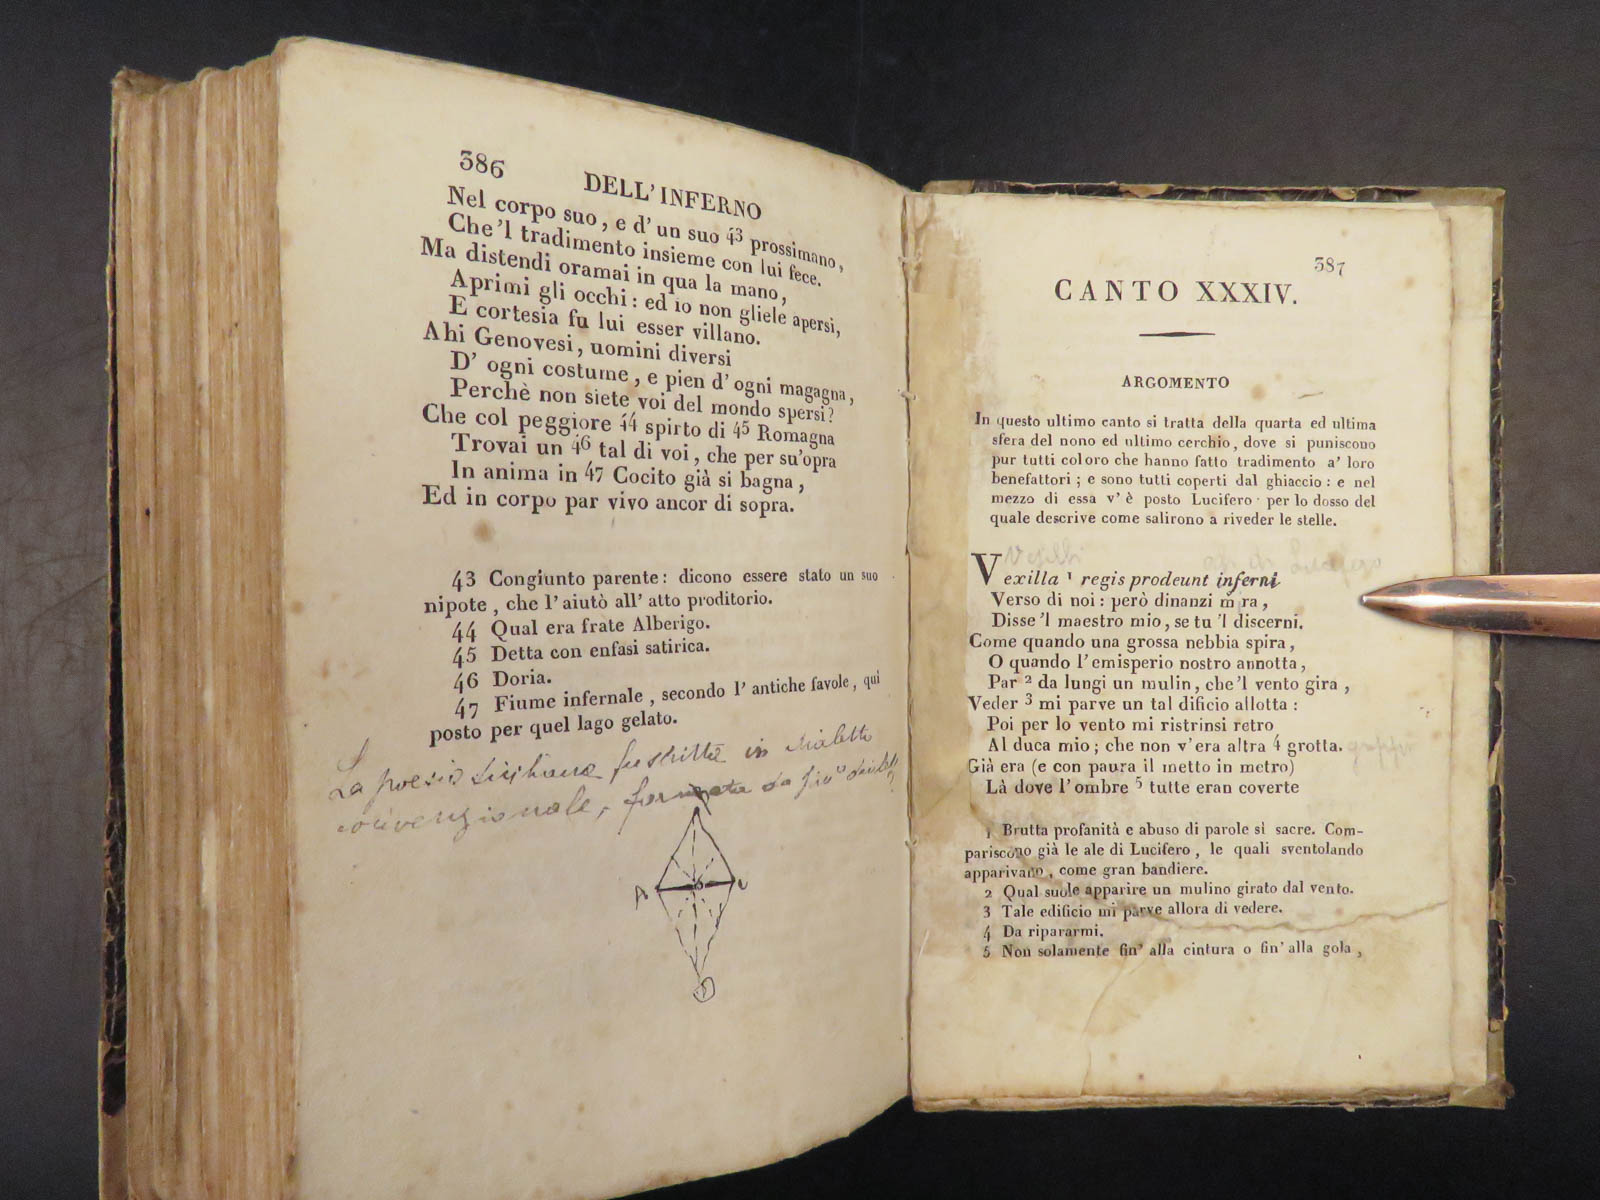 386
DELL' INFERNO
Nel corpo suo, e d' un suo 43 prossimano,
Che 'l tradimento insieme con lui fece.
Ma distendi oramai in qua la mano,
Aprimi gli occhi: ed io non gliele apersi,
E cortesia fu lui esser villano.
Ahi Genovesi, uomini diversi
D' ogni costume, e pien d' ogni magagna,
Perchè non siete voi del mondo spersi?
Che col peggiore 44 spirto di 45 Romagna
Trovai un 46 tal di voi, che per su' opra
In anima in 47 Cocito già si bagna,
Ed in corpo par vivo ancor di sopra.
43 Congiunto parente: dicono essere stato un suo
nipote, che l' aiutò all' atto proditorio.
44 Qual era frate Alberigo.
45 Detta con enfasi satirica.
46 Doria.
47 Fiume infernale, secondo l' antiche favole, qui
posto per quel lago gelato.
La poesia siciliana fu scritta in dialetto
convenzionale, formata da più
A
D
387
CANTO XXXIV.
ARGOMENTO
In questo ultimo canto si tratta della quarta ed ultima
sfera del nono ed ultimo cerchio, dove si puniscono
pur tutti coloro che hanno fatto tradimento a' loro
benefattori; e sono tutti coperti dal ghiaccio: e nel
mezzo di essa v' è posto Lucifero per lo dosso del
quale descrive come salirono a riveder le stelle.
Vessilli di Lucifero
Vexilla 1 regis prodeunt inferni
Verso di noi: però dinanzi mira,
Disse 'l maestro mio, se tu 'l discerni.
Come quando una grossa nebbia spira,
O quando l' emisperio nostro annotta,
Par 2 da lungi un mulin, che 'l vento gira,
Veder 3 mi parve un tal dificio allotta:
Poi per lo vento mi ristrinsi retro
Al duca mio; che non v' era altra 4 grotta.
Già era (e con paura il metto in metro)
Là dove l' ombre 5 tutte eran coverte
1 Brutta profanità e abuso di parole sì sacre. Com-
pariscono già le ale di Lucifero, le quali sventolando
apparivano, come gran bandiere.
2 Qual suole apparire un mulino girato dal vento.
3 Tale edificio mi parve allora di vedere.
4 Da ripararmi.
5 Non solamente fin' alla cintura o fin' alla gola,